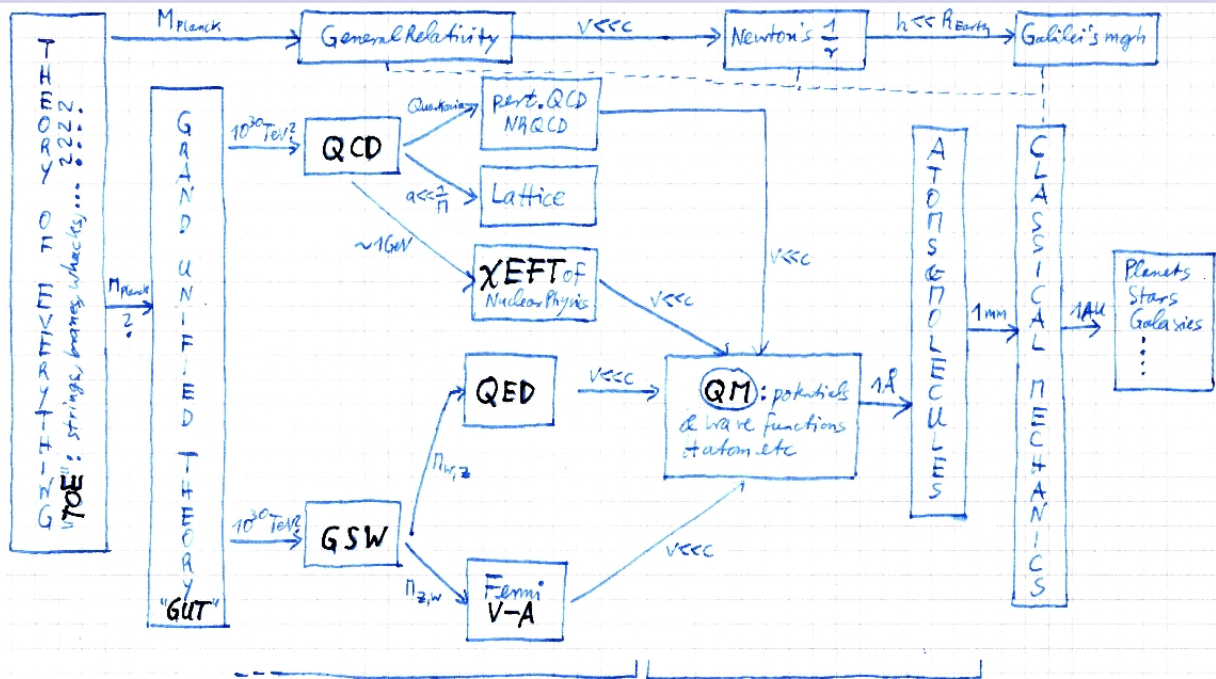 THEORY OF EVERYTHING
"TOE": strings, branes, whacks,... ????
M_Planck
General Relativity
v<<c
Newton's 1/r
h << R_Earth
Galilei's mgh
M_Planck
?
GRAND UNIFIED THEORY
"GUT"
10^30 TeV?
QCD
Quarkonia
pert. QCD
NRQCD
a<<1/M
Lattice
~1GeV
χEFT of
Nuclear Physics
v<<c
v<<c
10^30 TeV?
GSW
M_W,Z
QED
v<<c
M_Z,W
Fermi
V-A
v<<c
QM: potentials
& wave functions
H atom etc
1Å
ATOMS & MOLECULES
1mm
CLASSICAL MECHANICS
1AU
Planets
Stars
Galaxies